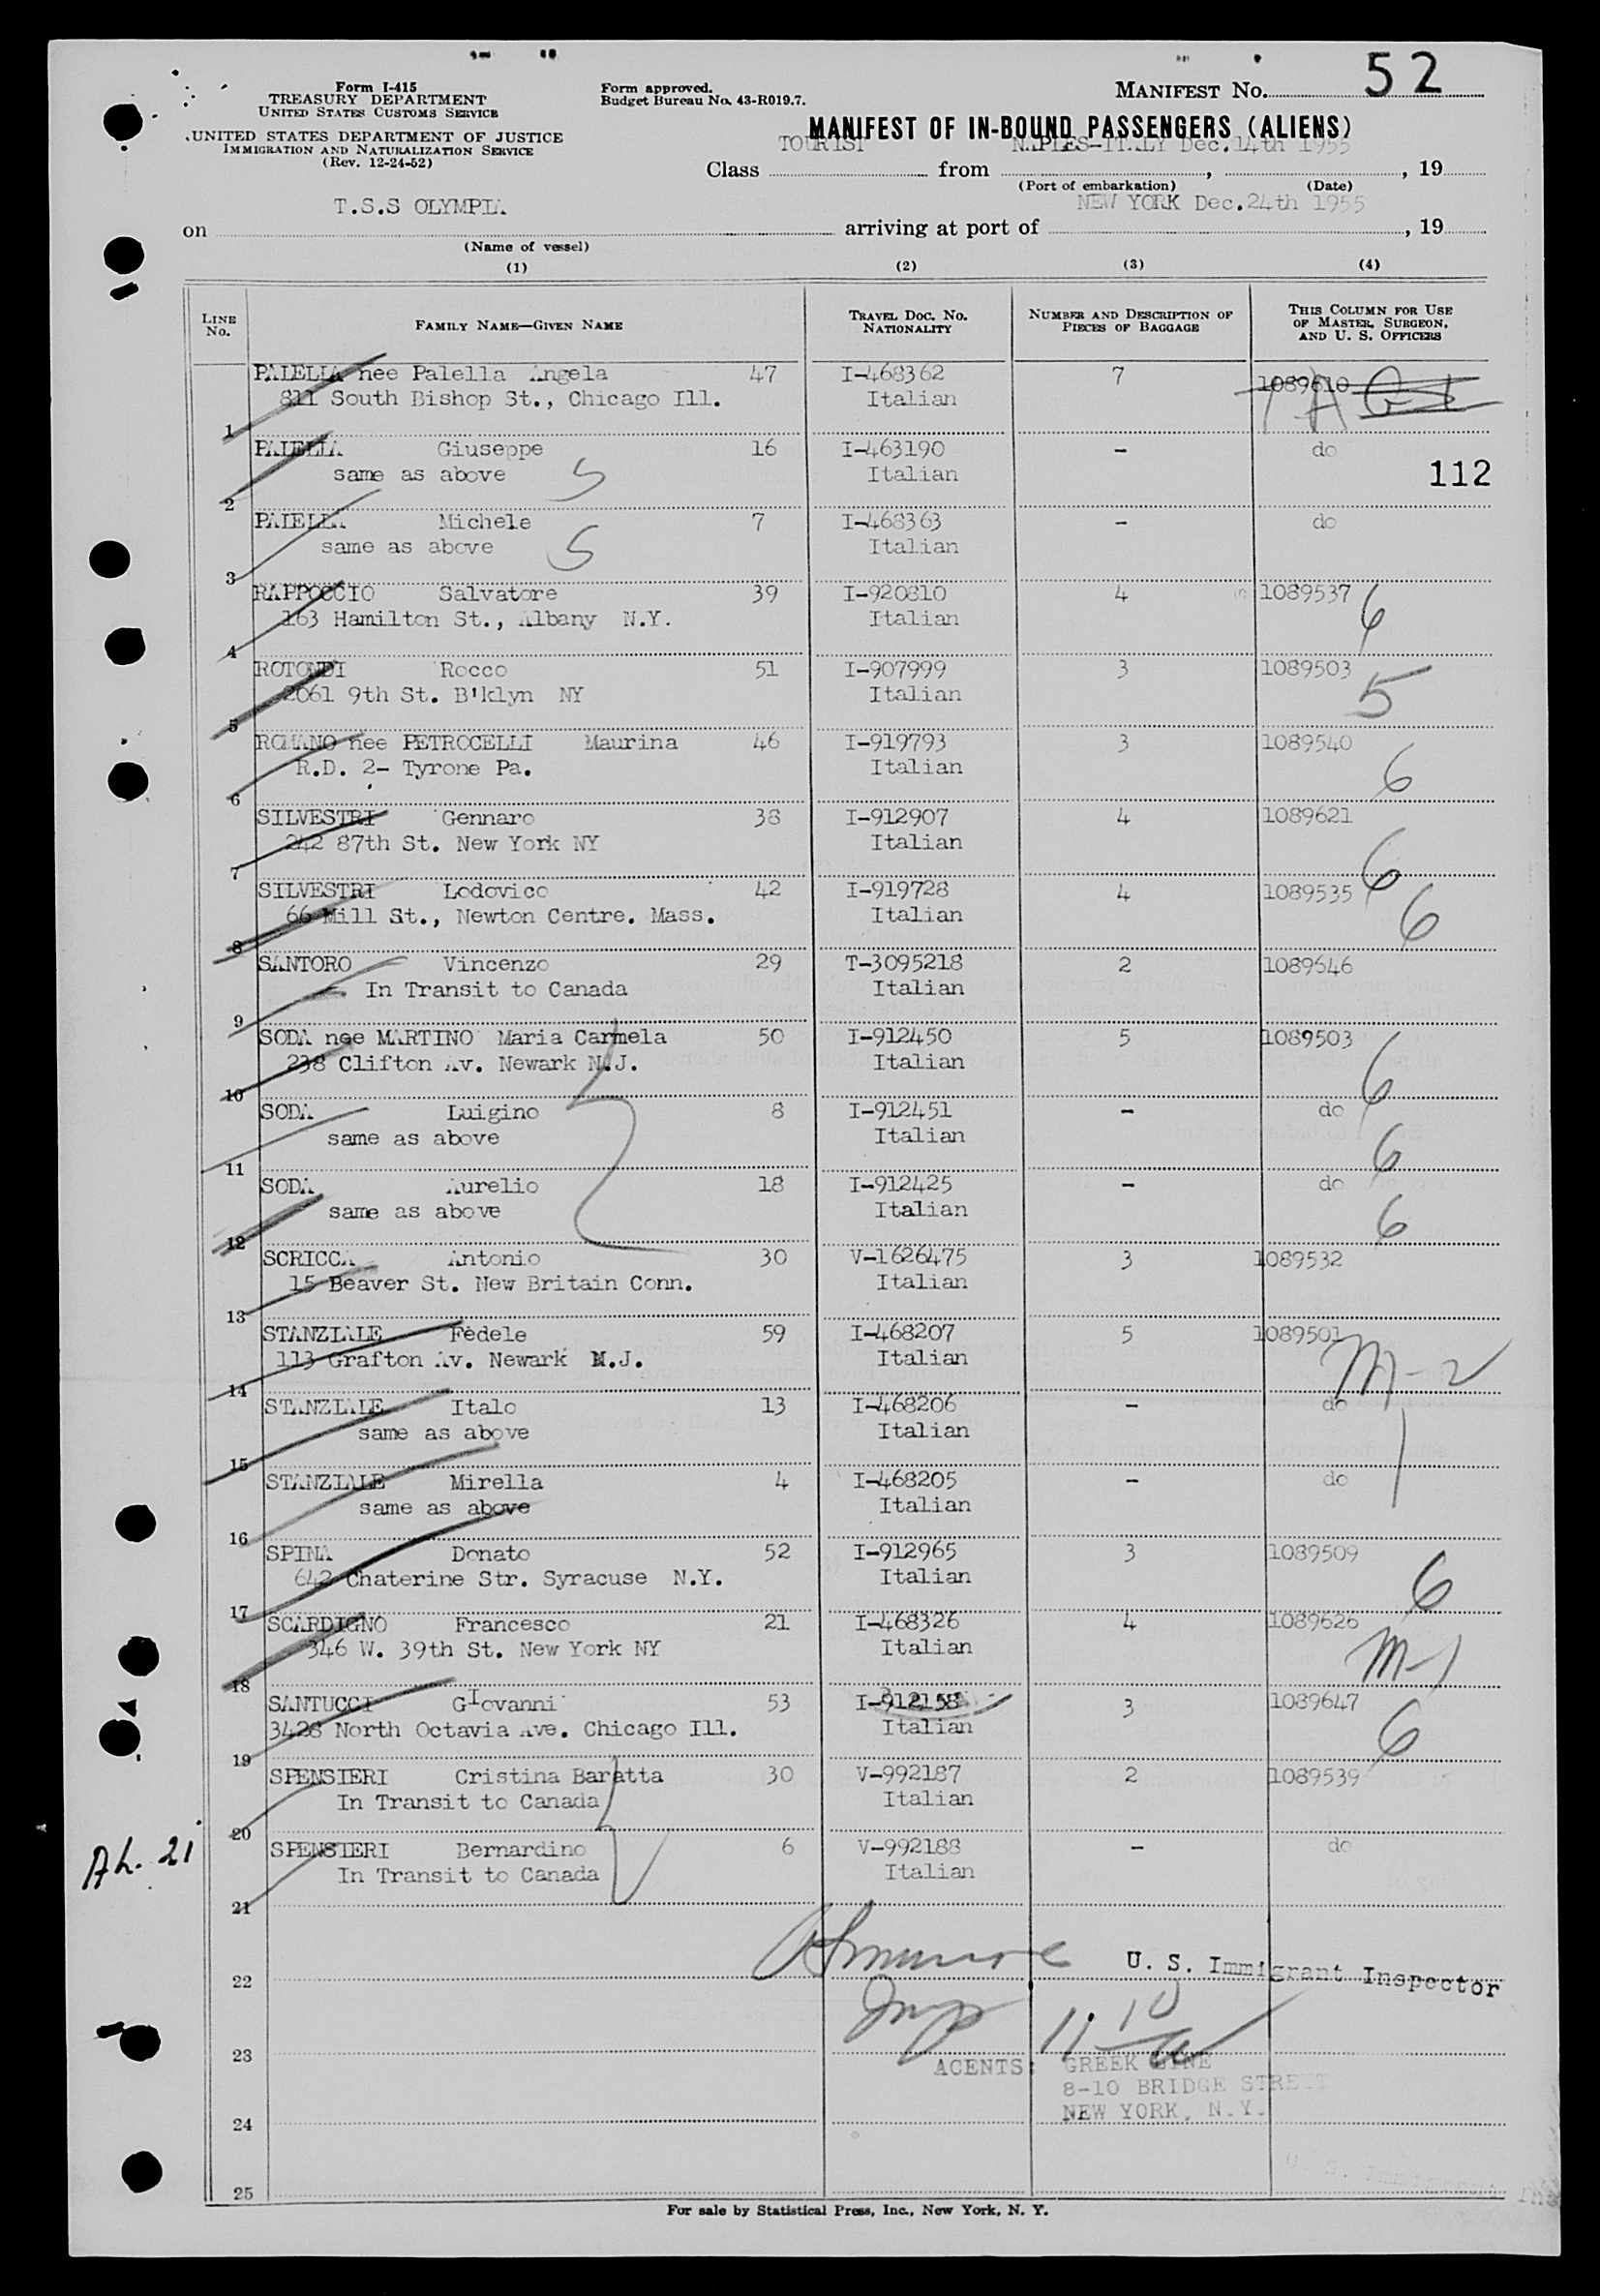 52
Form I-415
TREASURY DEPARTMENT
UNITED STATES CUSTOMS SERVICE
UNITED STATES DEPARTMENT OF JUSTICE
IMMIGRATION AND NATURALIZATION SERVICE
(Rev. 12-24-52)
Form approved.
Budget Bureau No. 43-R019.7.
MANIFEST No.
MANIFEST OF IN-BOUND PASSENGERS (ALIENS)
TOURIST NAPLES-ITALY Dec.14th 1955
Class from , , 19
(Port of embarkation) (Date)
T.S.S OLYMPIA NEW YORK Dec.24th 1955
on arriving at port of , 19
(Name of vessel)
(1) (2) (3) (4)
LINE No. FAMILY NAME—GIVEN NAME TRAVEL DOC. NO. NATIONALITY NUMBER AND DESCRIPTION OF PIECES OF BAGGAGE THIS COLUMN FOR USE OF MASTER, SURGEON, AND U. S. OFFICERS
PAIELLA nee Palella Angela 47 I-468362 7 1089610
811 South Bishop St., Chicago Ill. Italian
1
PAIELLA Giuseppe 16 I-463190 - do
same as above S Italian 112
2
PAIELLA Michele 7 I-468363 - do
same as above S Italian
3
RAPPOCCIO Salvatore 39 I-920810 4 1089537 6
163 Hamilton St., Albany N.Y. Italian
4
ROTONDI Rocco 51 I-907999 3 1089503
2061 9th St. B'klyn NY Italian 5
5
ROMANO nee PETROCELLI Maurina 46 I-919793 3 1089540
R.D. 2- Tyrone Pa. Italian 6
6
SILVESTRI Gennaro 38 I-912907 4 1089621
242 87th St. New York NY Italian 6
7
SILVESTRI Lodovico 42 I-919728 4 1089535
66 Mill St., Newton Centre. Mass. Italian 6
8
SANTORO Vincenzo 29 T-3095218 2 1089646
In Transit to Canada Italian
9
SODA nee MARTINO Maria Carmela 50 I-912450 5 1089503
238 Clifton Av. Newark N.J. Italian 6
10
SODA Luigino 8 I-912451 - do
same as above Italian 6
11
SODA Aurelio 18 I-912425 - do
same as above Italian 6
12
SCRICCA Antonio 30 V-1626475 3 1089532
15 Beaver St. New Britain Conn. Italian
13
STANZIALE Fedele 59 I-468207 5 1089501
113 Grafton Av. Newark N.J. Italian M-2
14
STANZIALE Italo 13 I-468206 - do
same as above Italian
15
STANZIALE Mirella 4 I-468205 - do
same as above Italian
16
SPINA Donato 52 I-912965 3 1089509
642 Chaterine Str. Syracuse N.Y. Italian 6
17
SCARDIGNO Francesco 21 I-468326 4 1089626
346 W. 39th St. New York NY Italian M-1
18
SANTUCCI GIovanni 53 I-912158 3 1089647
3428 North Octavia Ave. Chicago Ill. Italian 6
19
SPENSIERI Cristina Baratta 30 V-992187 2 1089539
In Transit to Canada Italian
20
SPENSIERI Bernardino 6 V-992188 - do
In Transit to Canada Italian
21
22
U. S. Immigrant Inspector
23
AGENTS: GREEK LINE
8-10 BRIDGE STREET
NEW YORK, N.Y.
24
25
For sale by Statistical Press, Inc., New York, N. Y.